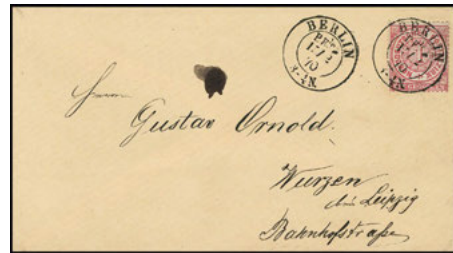 BERLIN
17/2
70
3-4N.
BERLIN
70
Herrn
Gustav Ornold.
Wurzen
bei Leipzig
Bahnhofstraße